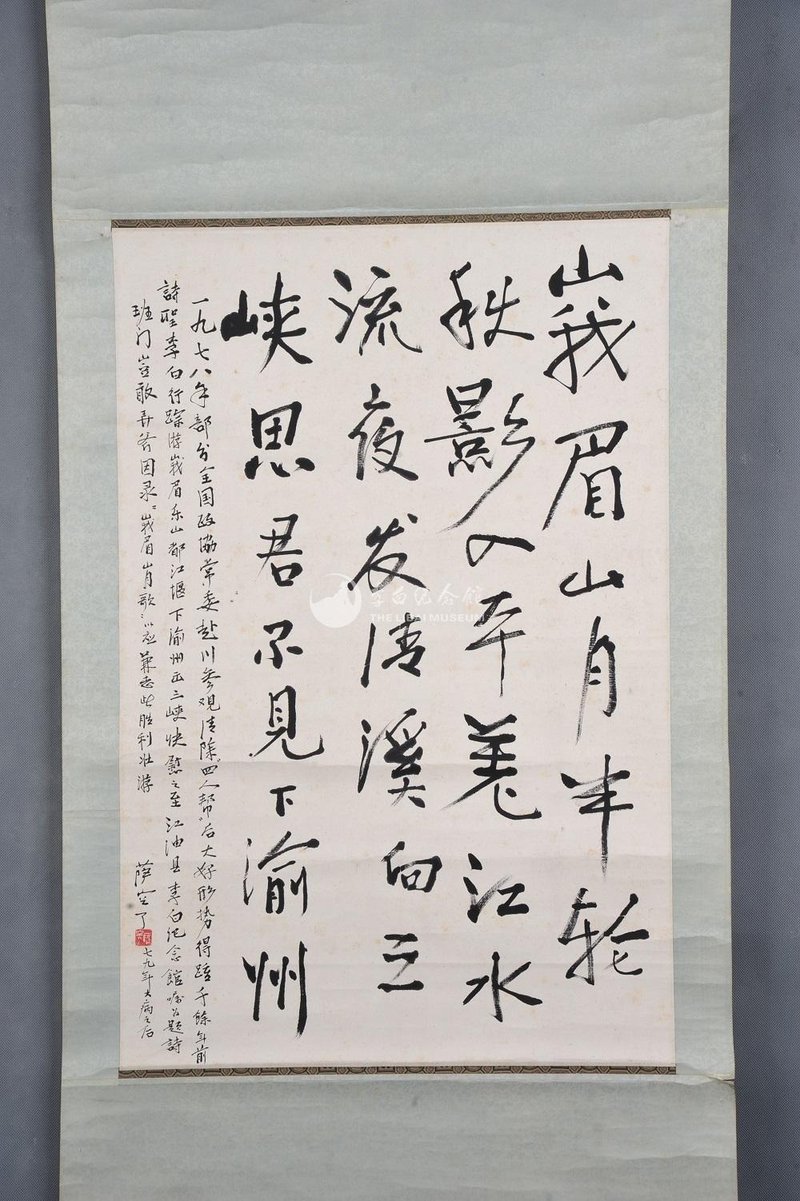 峩眉山月半轮
秋影入平羌江水
流夜发清溪向三
峡思君不见下渝州
一九七八年部分全国政协常委赴川参观清除"四人帮"后大好形势得踪千餘年前
詩聖李白行踪游峩眉乐山都江堰下渝州出三峡快慰之至江油县李白纪念館嘱为题詩
班门岂敢弄斧因录"峩眉山月歌"以应兼志此胜利壮游
萨空了
七九年大病之后
李白纪念馆
THE LIBAI MUSEUM